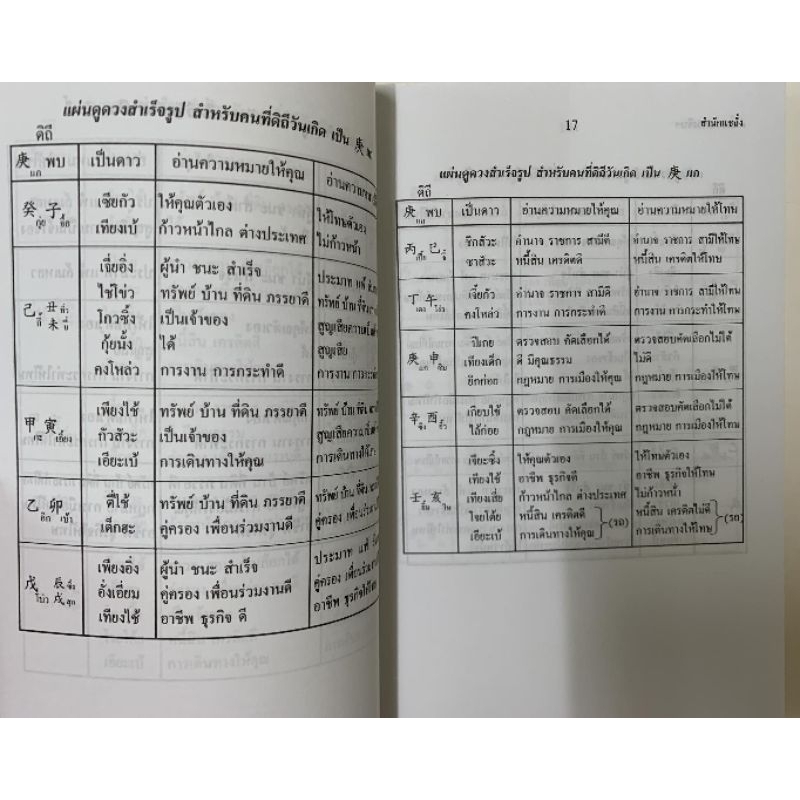 แผ่นดูดวงสำเร็จรูป สำหรับคนที่ดิถีวันเกิด เป็น 庚
ดิถี
庚 แก พบ เป็นดาว อ่านความหมายให้คุณ
癸 กุ่ย 子 เซียกัว ให้คุณตัวเอง ให้โทษตัวเอง
เทียงเบ้ ก้าวหน้าไกล ต่างประเทศ ไม่ก้าวหน้า
เจี่ยอิ่ง ผู้นำ ชนะ สำเร็จ ประมาท แพ้
己 丑 未 ใช่ไข่ว ทรัพย์ บ้าน ที่ดิน ภรรยาดี ทรัพย์ บ้าน ที่ดิน
โกวซิ้ง เป็นเจ้าของ
กุ้ยนั้ง ได้ สูญเสีย
คงไหล่ว การงาน การกระทำดี การงาน การกระทำ
甲 寅 เพียงใช้ ทรัพย์ บ้าน ที่ดิน ภรรยาดี ทรัพย์ บ้าน ที่ดิน
กัวสัวะ เป็นเจ้าของ
เอียะเบ้ การเดินทางให้คุณ การเดินทางให้
乙 อิก 卯 เบ้า ตี่ใช้ ทรัพย์ บ้าน ที่ดิน ภรรยาดี ทรัพย์ บ้าน ที่ดิน
เด็กฮะ คู่ครอง เพื่อนร่วมงานดี คู่ครอง เพื่อนร่วม
เพียงอิ่ง ผู้นำ ชนะ สำเร็จ ประมาท แพ้
戊 โบ่ว 辰 戌 อั่งเอี่ยม คู่ครอง เพื่อนร่วมงานดี คู่ครอง เพื่อนร่วม
เทียงใช้ อาชีพ ธุรกิจ ดี อาชีพ ธุรกิจ
17 สำนักแชลั้ง
แผ่นดูดวงสำเร็จรูป สำหรับคนที่ดิถีวันเกิด เป็น 庚 แก
ดิถี
庚 แก พบ เป็นดาว อ่านความหมายให้คุณ อ่านความหมายให้โทษ
丙 巳 ชิกสัวะ อำนาจ ราชการ สามีดี อำนาจ ราชการ สามีให้โทษ
ซาสัวะ หนี้สิน เครดิตดี หนี้สิน เครดิตให้โทษ
丁 午 เจี่ยกัว อำนาจ ราชการ สามีดี อำนาจ ราชการ สามีให้โทษ
คงไหล่ว การงาน การกระทำดี การงาน การกระทำให้โทษ
ปีเกย ตรวจสอบ คัดเลือกได้ ตรวจสอบคัดเลือกไม่ได้
庚 แก 申 ซิม เทียงเด็ก ดี มีคุณธรรม ไม่ดี
ยิกก่อย กฎหมาย การเมืองให้คุณ กฎหมาย การเมืองให้โทษ
辛 ซิง 酉 อิ้ว เกียบใช้ ตรวจสอบ คัดเลือกได้ ตรวจสอบคัดเลือกไม่ได้
ไล้ก่อย กฎหมาย การเมืองให้คุณ กฎหมาย การเมืองให้โทษ
เจียะซิ้ง ให้คุณตัวเอง ให้โทษตัวเอง
เทียงใช้ อาชีพ ธุรกิจดี อาชีพ ธุรกิจให้โทษ
壬 ยิ้ม 亥 ไห เทียงเสี่ย ก้าวหน้าไกล ต่างประเทศ ไม่ก้าวหน้า
ไจยโต้ย หนี้สิน เครดิตดี (รถ) หนี้สิน เครดิตไม่ดี (รถ)
เอียะเบ้ การเดินทางให้คุณ การเดินทางให้โทษ